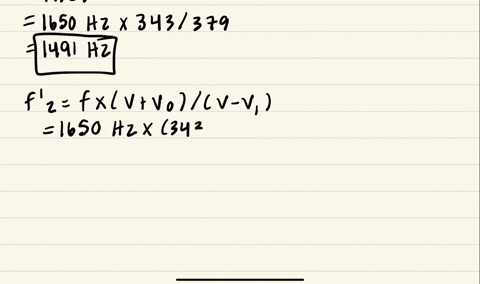 = 1650 Hz x 343/379
= 1491 Hz
f'₂ = f x (V+V₀)/(V-V₁)
= 1650 Hz x (342